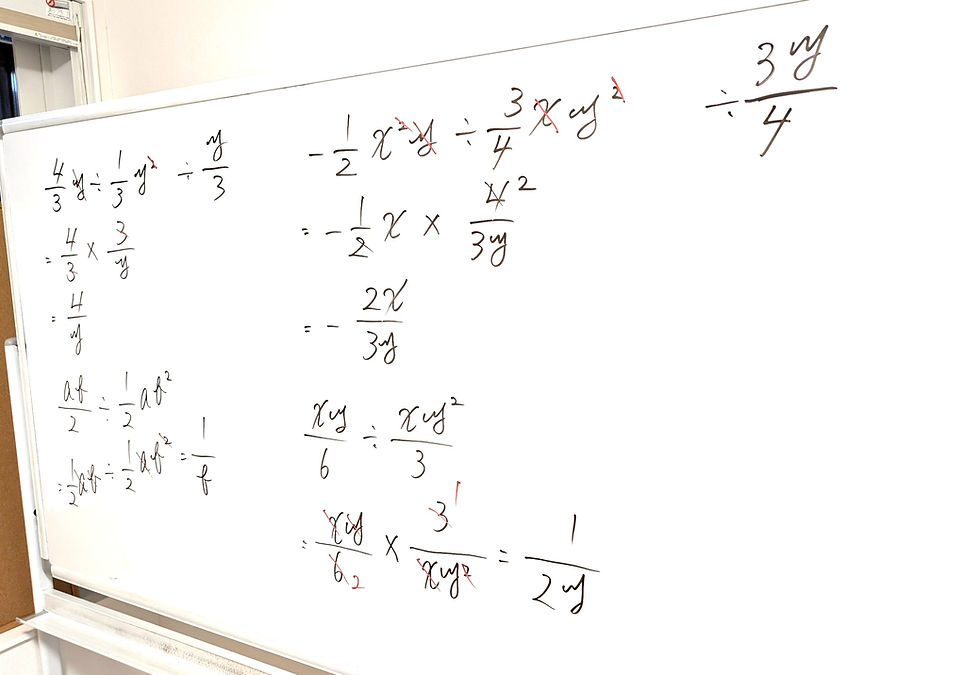 4/3 y ÷ 1/3 y² ÷ y/3
= 4/3 × 3/y
= 4/y
ab/2 ÷ 1/2 ab²
= 1/2 ab ÷ 1/2 ab² = 1/b
- 1/2 x² y ÷ 3/4 x y²
= - 1/2 x × 4/3y 2
= - 2x/3y
xy/6 ÷ xy²/3
= xy/6 2 × 3 1/xy² = 1/2y
÷ 3y/4